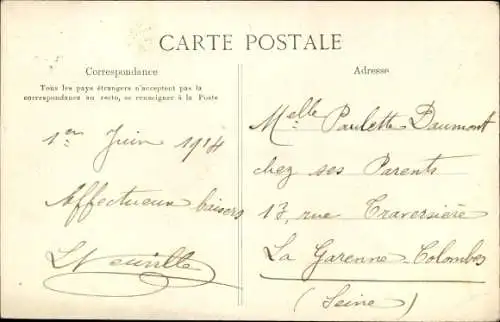 CARTE POSTALE
Correspondance
Tous les pays étrangers n'acceptent pas la
correspondance au recto, se renseigner à la Poste
1er Juin 1914
Affectueux baisers
Neuville
Adresse
Melle Paulette Daumont
chez ses Parents
13, rue Traversière
La Garenne-Colombes
(Seine)